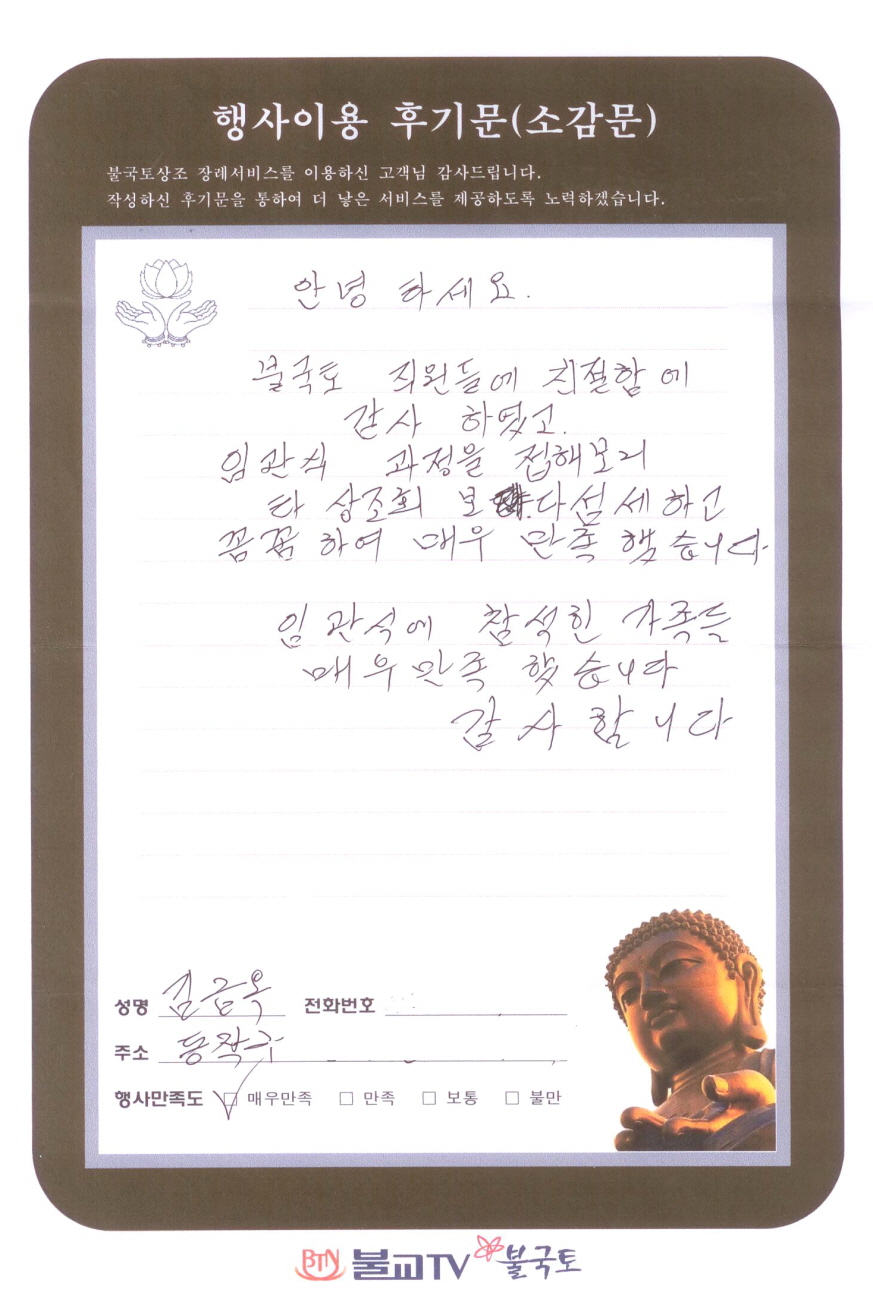 행사이용 후기문(소감문)
불국토상조 장례서비스를 이용하신 고객님 감사드립니다.
작성하신 후기문을 통하여 더 낳은 서비스를 제공하도록 노력하겠습니다.
안녕 하세요.
불국토 직원들에 친절함에
감사 하였고.
임관식 과정을 접해보니
타 상조회 보다 섬세하고
꼼꼼하여 매우 만족 했습니다
임관식에 참석한 가족들
매우만족 했습니다
감사합니다
성명 김금옥 전화번호
주소 동작구
행사만족도 매우만족 만족 보통 불만
BTN 불교TV 불국토